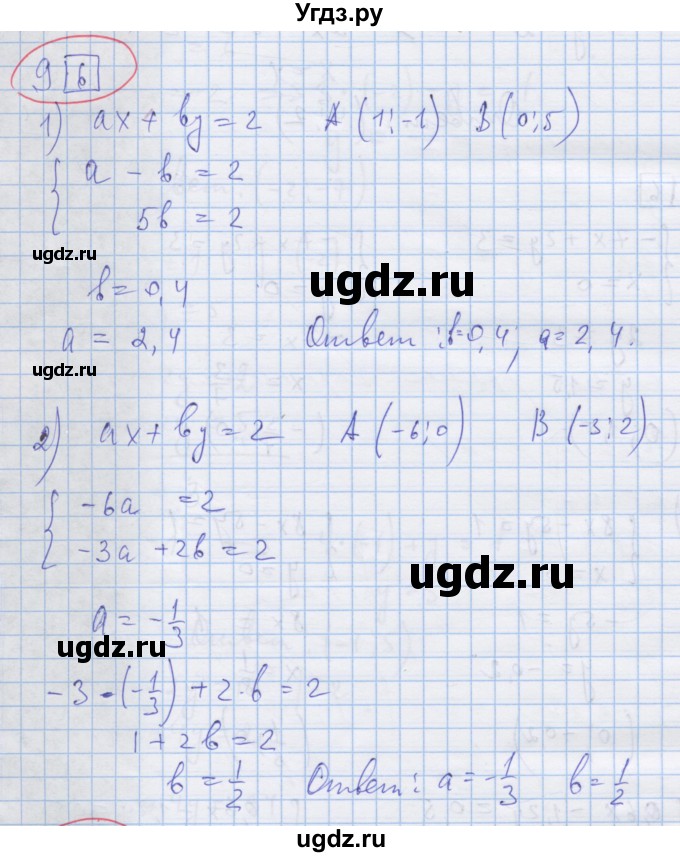 Угдз.ру
9 6
1) ax + by = 2 A (1; -1) B (0; 5)
a - b = 2
5b = 2
ugdz.ru
b = 0,4
ugdz.ru
a = 2,4 Ответ: b=0,4; a = 2,4.
ugdz.ru
2) ax + by = 2 A (-6; 0) B (-3; 2)
-6a = 2
-3a + 2b = 2
ugdz.ru
a = -1/3
ugdz.ru
-3 · (-1/3) + 2·b = 2
1 + 2b = 2
b = 1/2 Ответ: a = -1/3 b = 1/2
ugdz.ru